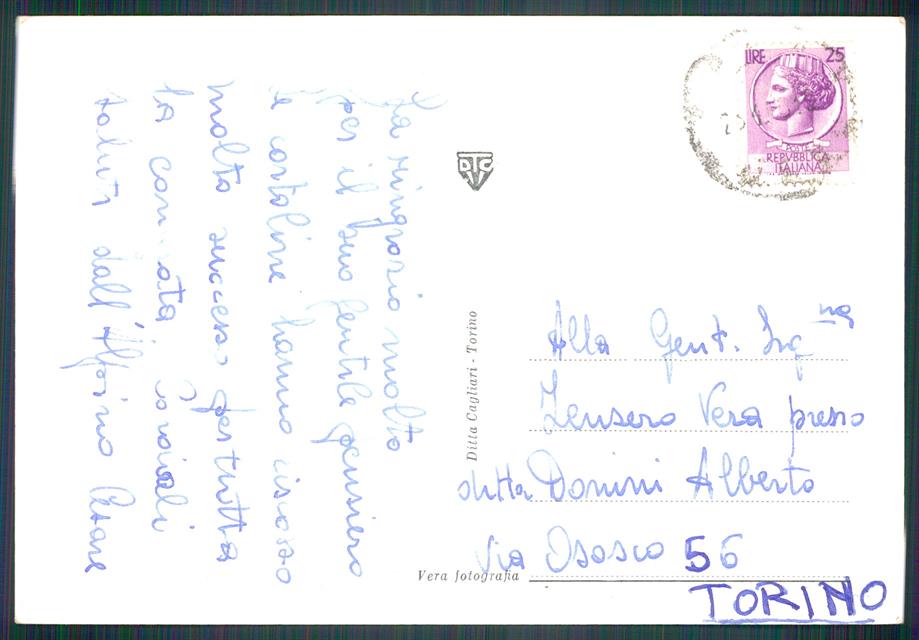 La ringrazio molto
per il suo gentile pensiero
le cartoline hanno riscosso
molto successo per tutta
la Cordiali
saluti dall'Alpino Cesare
LIRE 25
POSTE
REPVBBLICA
ITALIANA
DTC
Ditta Cagliari - Torino
Vera fotografia
Alla Gent. Sig na
Zensero Vera presso
ditta Donini Alberto
Via Osasco 56
TORINO